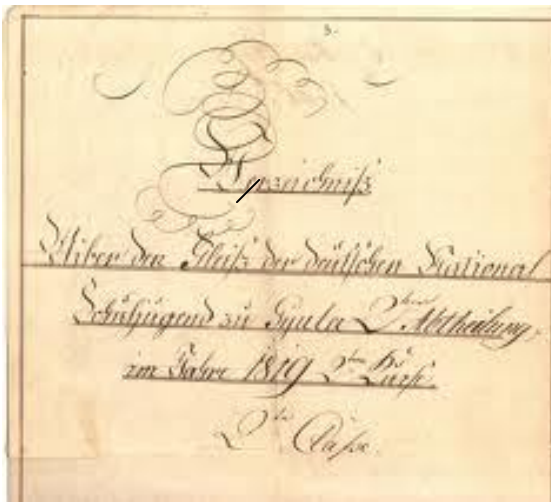 3.
Verzeichniß
Uiber den Fleiß der deütschen National
Schuljugend zu Gyula 2ter Abtheilung,
im Jahre 1819 2ten Kurse
2te Classe.